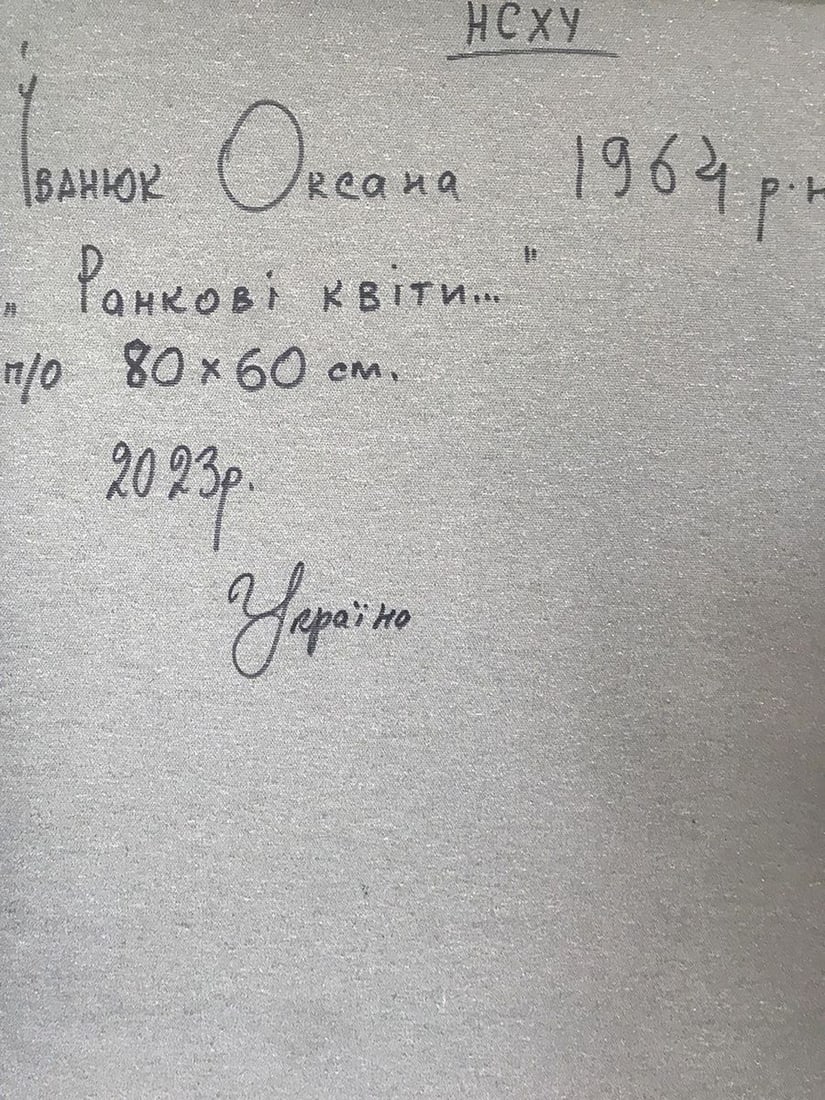 НСХУ
Іванюк Оксана 1964 р.н
„Ранкові квіти..."
п/о 80 х 60 см.
2023р.
Україна